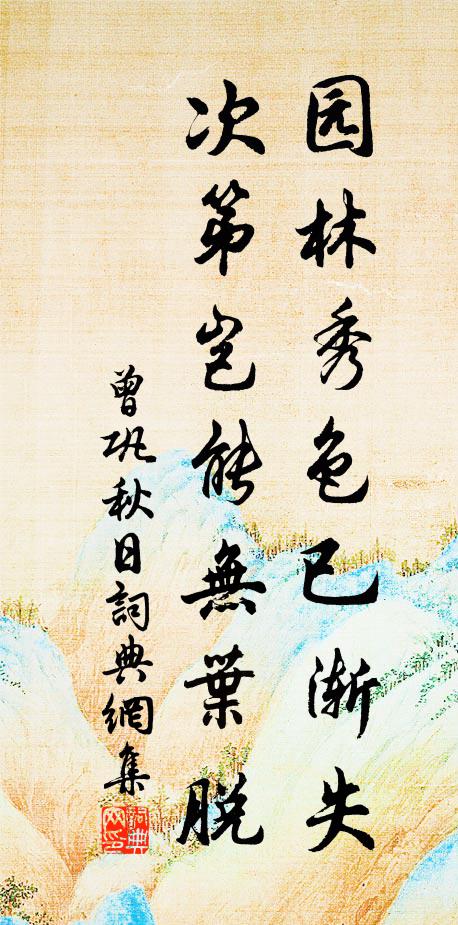 园林秀色已渐失
次第岂能無葉脱
曾巩秋日詞典網集
詞典
网印